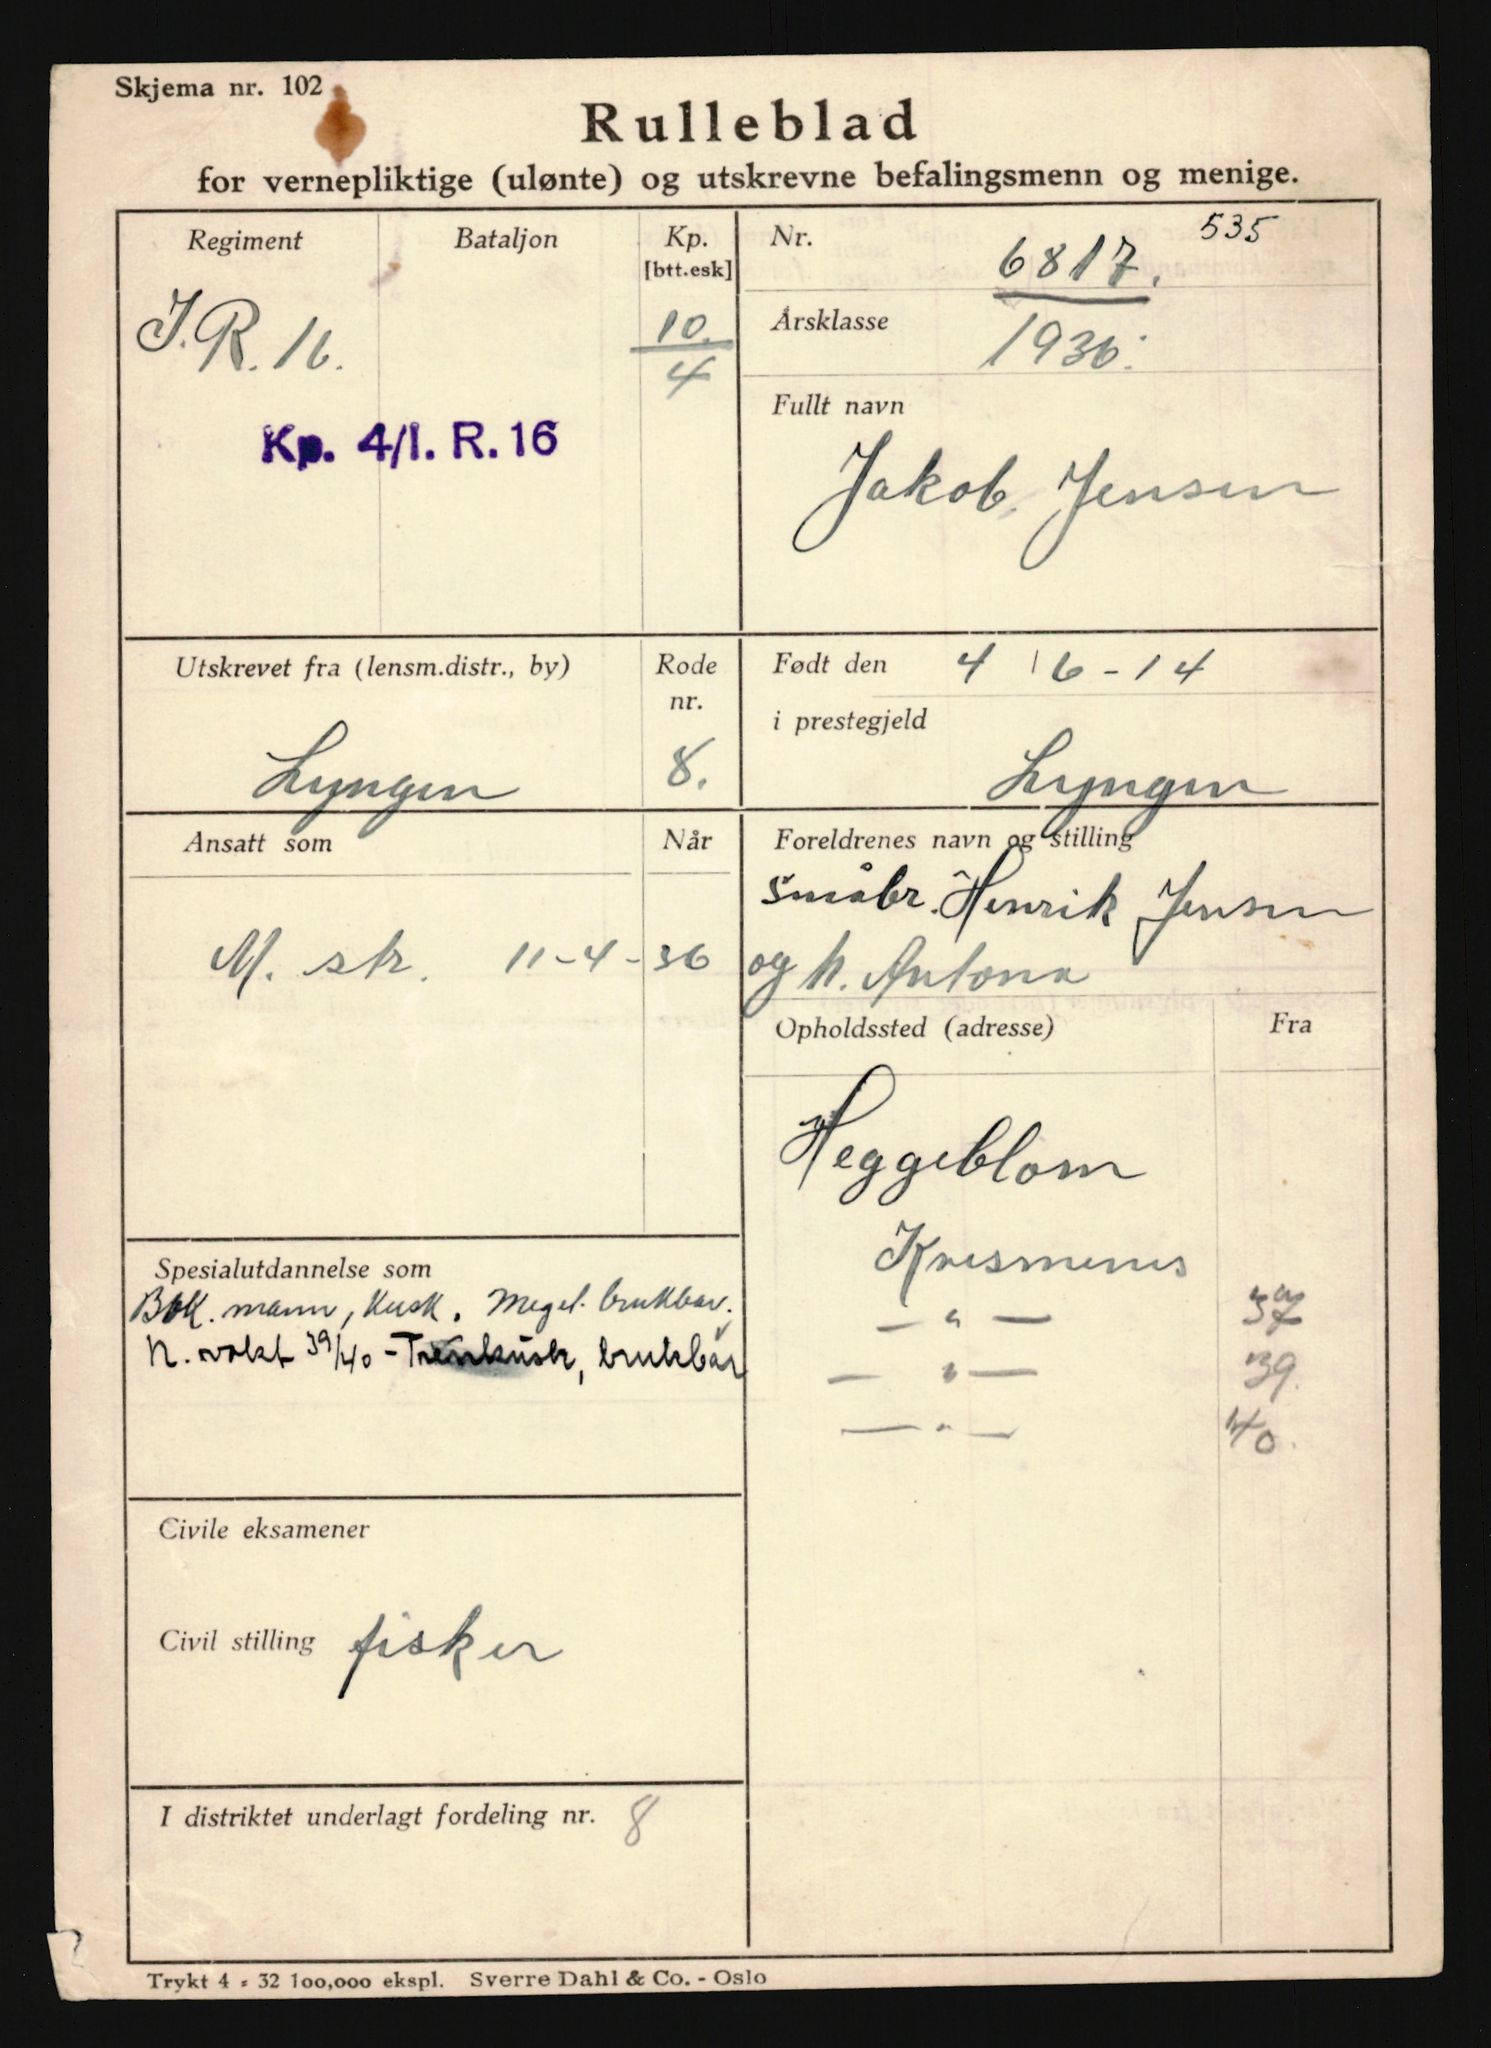 Skjema nr. 102
Rulleblad
for vernepliktige (ulønte) og utskrevne befalingsmenn og menige.
Regiment
Bataljon
Kp.
[btt.esk]
J.R. 16.
10.
4
Kp. 4/I. R. 16
Nr.
535
6817.
Årsklasse
1936.
Fullt navn
Jakob Jensen
Utskrevet fra (lensm.distr., by)
Rode
nr.
Lyngen
8.
Født den 4/6-14
i prestegjeld
Lyngen
Ansatt som
Når
M. str. 11-4-36
Foreldrenes navn og stilling
småbr. Henrik Jensen
og h. Antona
Opholdssted (adresse)
Fra
Heggeblom
Kvesmenes
— " — 37
— " — 39.
— " — 40.
Spesialutdannelse som
mann, Kusk. Meget brukbar.
N. vakt 39/40 - Trenkusk, brukbar
Civile eksamener
Civil stilling fisker
I distriktet underlagt fordeling nr. 8
Trykt 4 - 32 100,000 ekspl. Sverre Dahl & Co. - Oslo